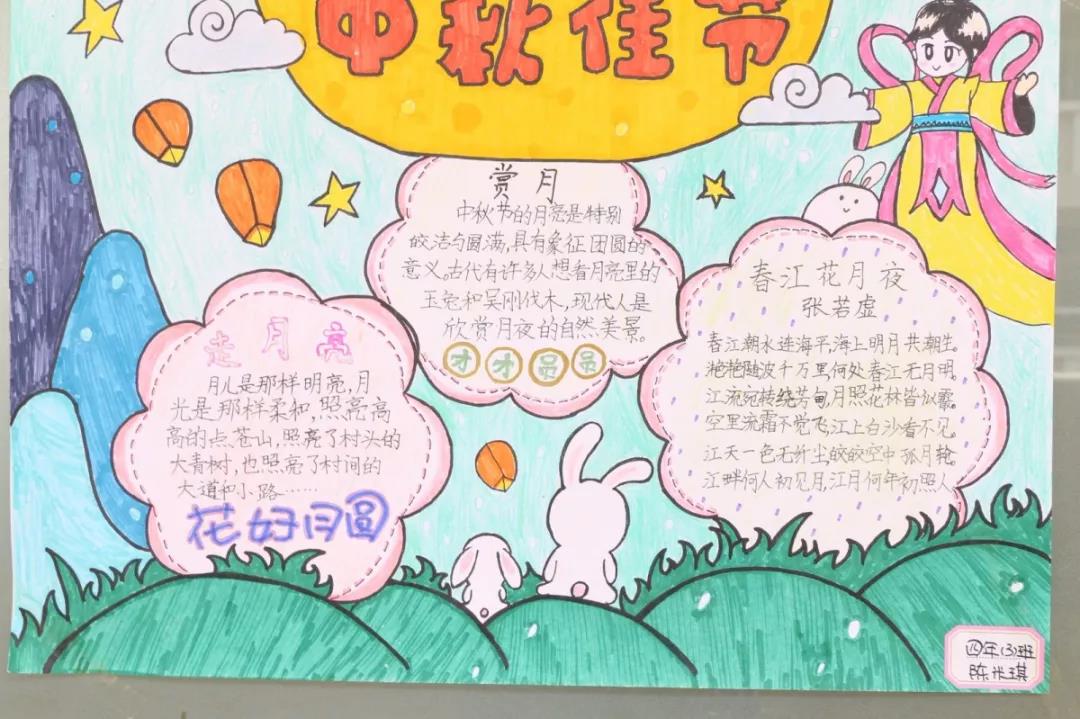 中秋佳节
赏月
中秋节的月亮是特别
皎洁与圆满,具有象征团圆的
意义。古代有许多人想看月亮里的
玉兔和吴刚伐木,现代人是
欣赏月夜的自然美景。
才才员员
走月亮
月儿是那样明亮,月
光是那样柔和,照亮高
高的点苍山,照亮了村头的
大青树,也照亮了村间的
大道和小路……
花好月圆
春江花月夜
张若虚
春江潮水连海平,海上明月共潮生。
滟滟随波千万里,何处春江无月明
江流宛转绕芳甸,月照花林皆似霰。
空里流霜不觉飞,江上白沙看不见。
江天一色无纤尘,皎皎空中孤月轮。
江畔何人初见月,江月何年初照人
四年(3)班
陈米琪